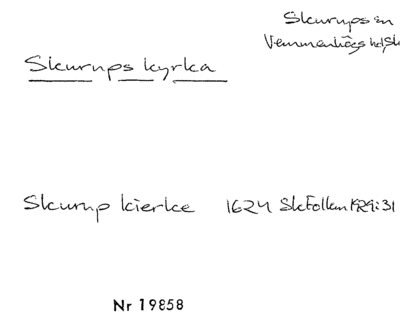 Skurups sn
Vemmenhögs hd, Sk
Skurups kyrka
Skurup kierke 1624 SkFolkm 1929:31
Nr 19858